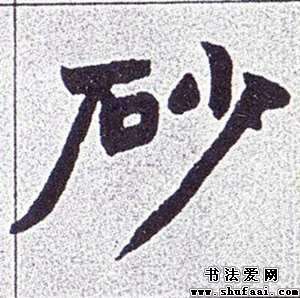 砂
书法爱网
www.shufaai.com